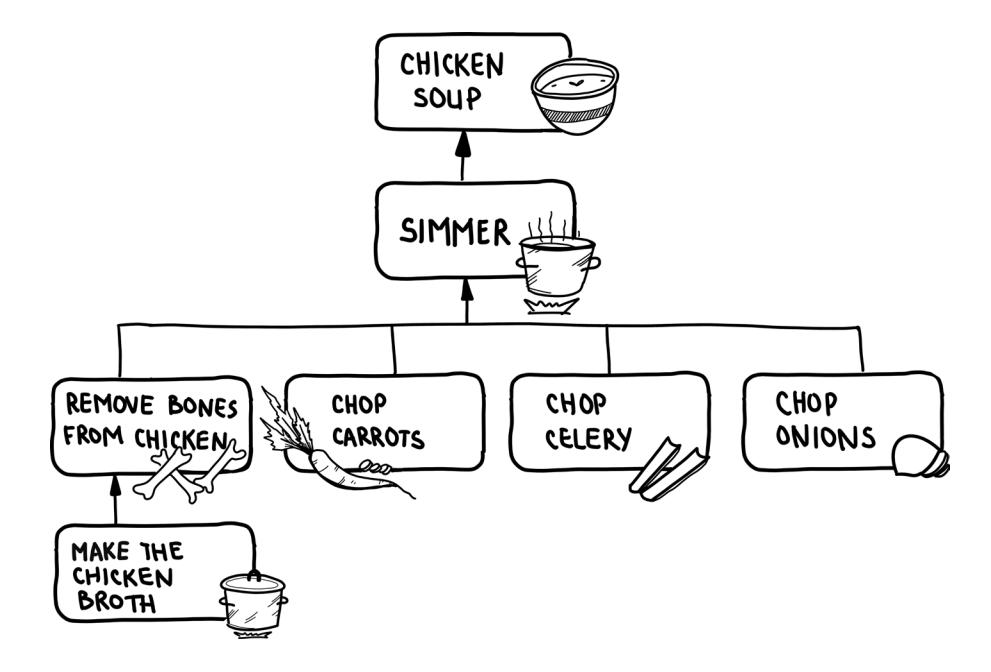 CHICKEN
SOUP
SIMMER
REMOVE BONES
FROM CHICKEN
CHOP
CARROTS
CHOP
CELERY
CHOP
ONIONS
MAKE THE
CHICKEN
BROTH